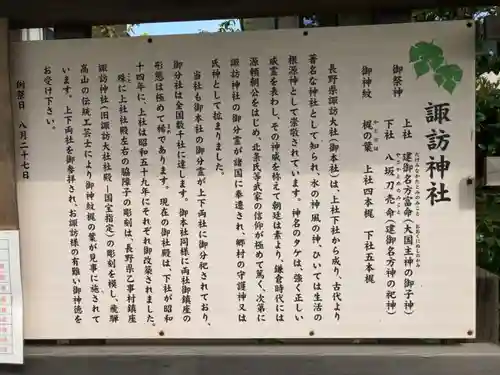 諏訪神社
御祭神
上社 建御名方富命(大国主神の御子神)
たけみなかたとみのみこと おおくにぬしのかみ
下社 八坂刀売命(建御名方神の妃神)
やさかとめのみこと
御神紋
梶の葉 上社四本梶 下社五本梶
長野県諏訪大社(御本社)は、上社下社から成り、古代より
著名な神社として知られ、水の神、風の神、ひいては生活の
根源神として崇敬されています。神名のタケは、強く正しい
威霊を表わし、その神威を称えて朝廷は素より、鎌倉時代には
源頼朝公をはじめ、北条氏等武家の信仰が極めて篤く、次第に
諏訪神社の御分霊が諸国に奉遷され、郷村の守護神又は
氏神として拡まりました。
当社も御本社の御分霊が上下両社に御分祀されており、
御分社は全国数千社に達します。御本社同様に両社御鎮座の
形態は極めて稀であります。現在の御社殿は、下社が昭和
十四年に、上社は昭和五十九年にそれぞれ御改築されました。
殊に上社社殿左右の脇障子の彫刻は、長野県乙事村鎮座
諏訪神社(旧諏訪大社社殿―国宝指定)の彫刻を模し、飛騨
高山の伝統工芸士により御神紋梶の葉が見事に施されて
います。上下両社を御参拝され、お諏訪様の有難い御神徳を
お受け下さい。
例祭日 八月二十七日